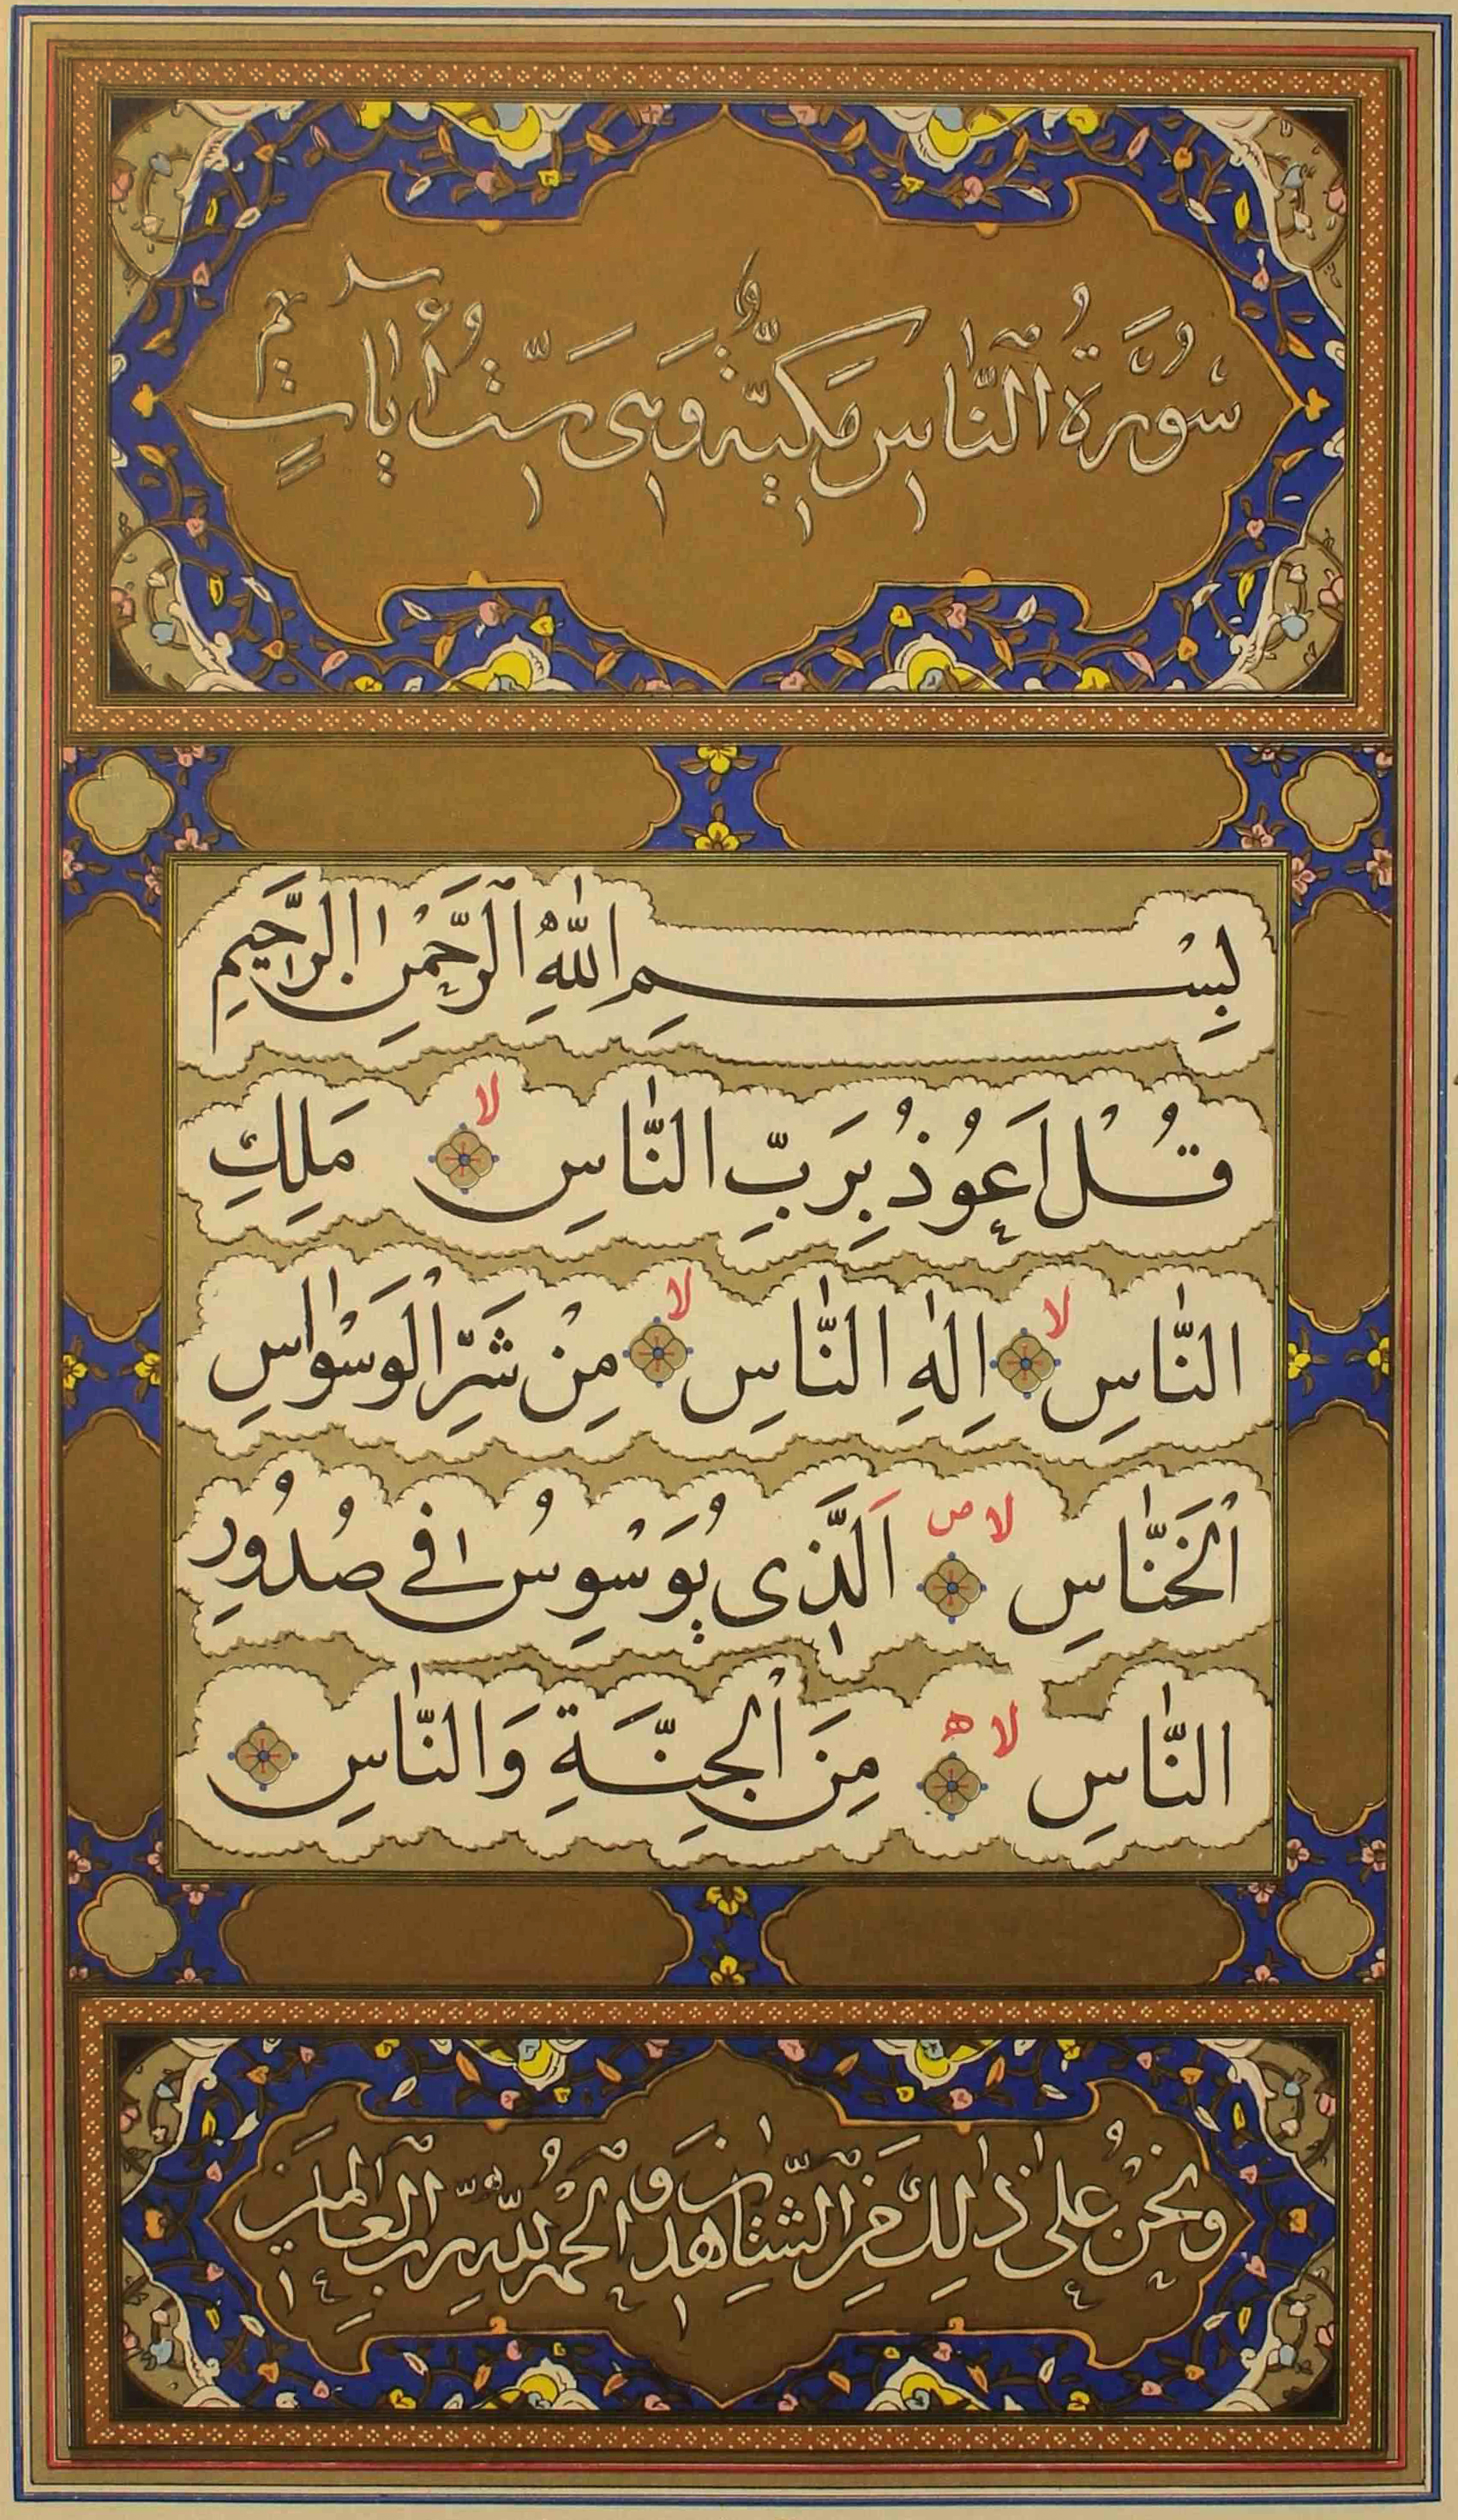 سُورَةُ النَّاسِ مَكِّيَّةٌ وَهِيَ سِتُّ اٰيَاتٍ
بِسْمِ اللّٰهِ الرَّحْمٰنِ الرَّحِيمِ
قُلْ اَعُوذُ بِرَبِّ النَّاسِ لا مَلِكِ
النَّاسِ لا اِلٰهِ النَّاسِ لا مِنْ شَرِّ الْوَسْوَاسِ
الْخَنَّاسِ لا ص اَلَّذِى يُوَسْوِسُ فِى صُدُورِ
النَّاسِ لا ه مِنَ الْجِنَّةِ وَالنَّاسِ
وَنَحْنُ عَلٰى ذٰلِكَ مِنَ الشَّاهِدِينَ وَ الْحَمْدُ لِلّٰهِ رَبِّ الْعَالَمِينَ